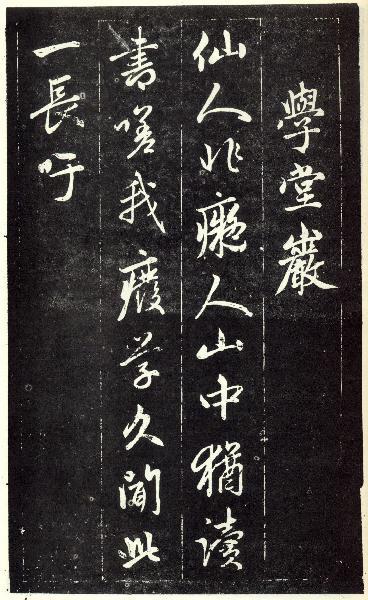 學堂巖
仙人非癡人山中猶讀
書嗟我廢學久聞此
一長吁